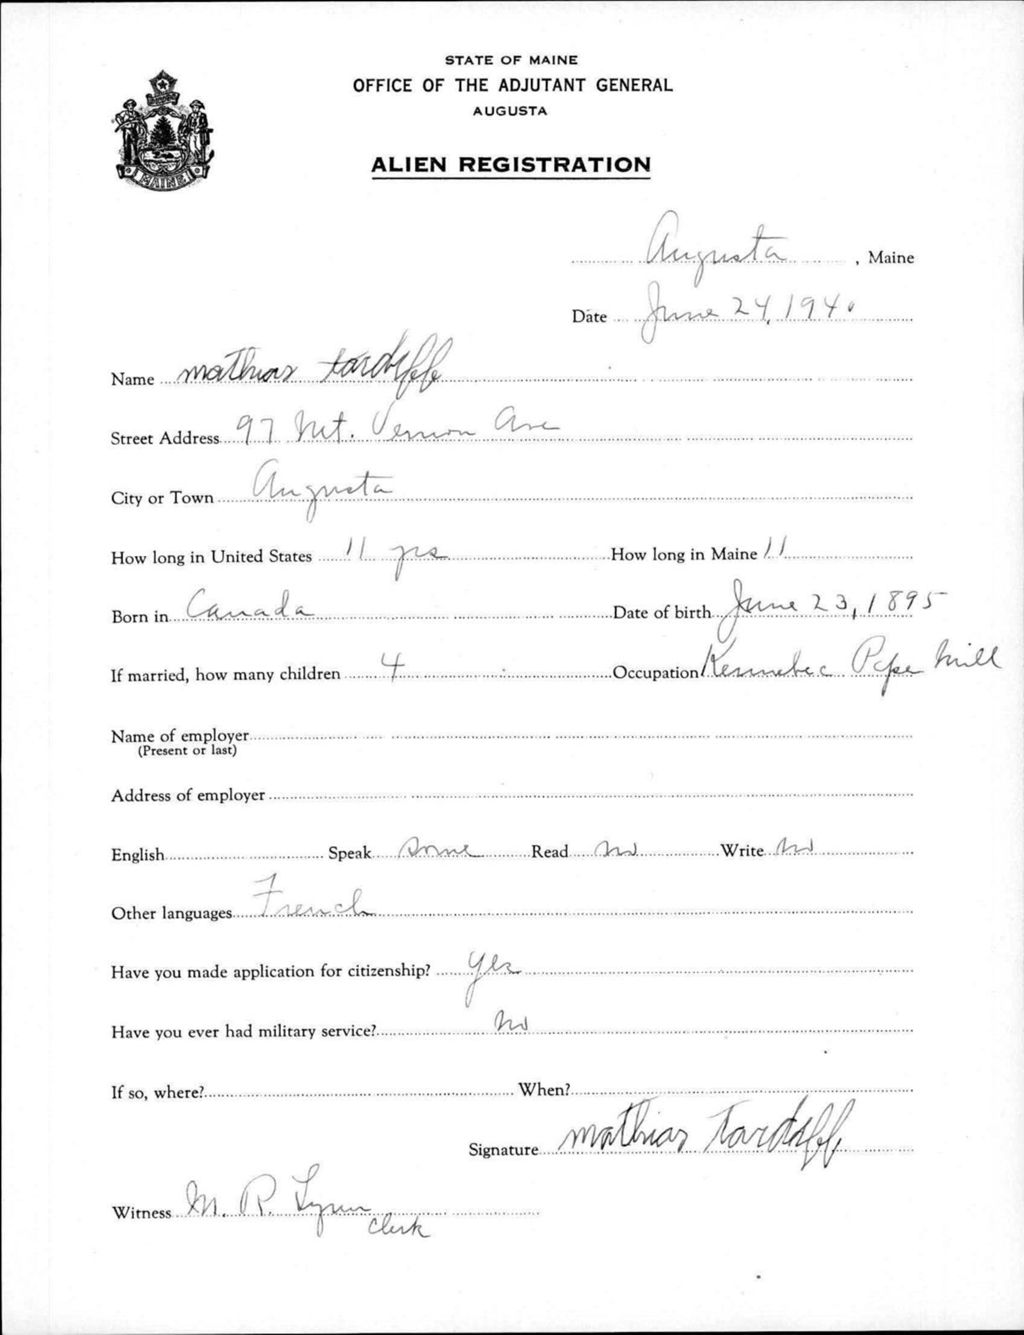 STATE OF MAINE
OFFICE OF THE ADJUTANT GENERAL
AUGUSTA
ALIEN REGISTRATION
MAINE
Augusta, Maine
Date June 24, 1940
Name Mathias Tardiff
Street Address 97 Mt. Vernon Ave
City or Town Augusta
How long in United States 11 yrs How long in Maine 11
Born in Canada Date of birth June 23, 1895
If married, how many children 4 Occupation Kennebec Paper Mill
Name of employer
(Present or last)
Address of employer
English Speak Some Read No Write No
Other languages French
Have you made application for citizenship? Yes
Have you ever had military service? No
If so, where? When?
Signature Mathias Tardiff
Witness M. R. Lynn
Clerk